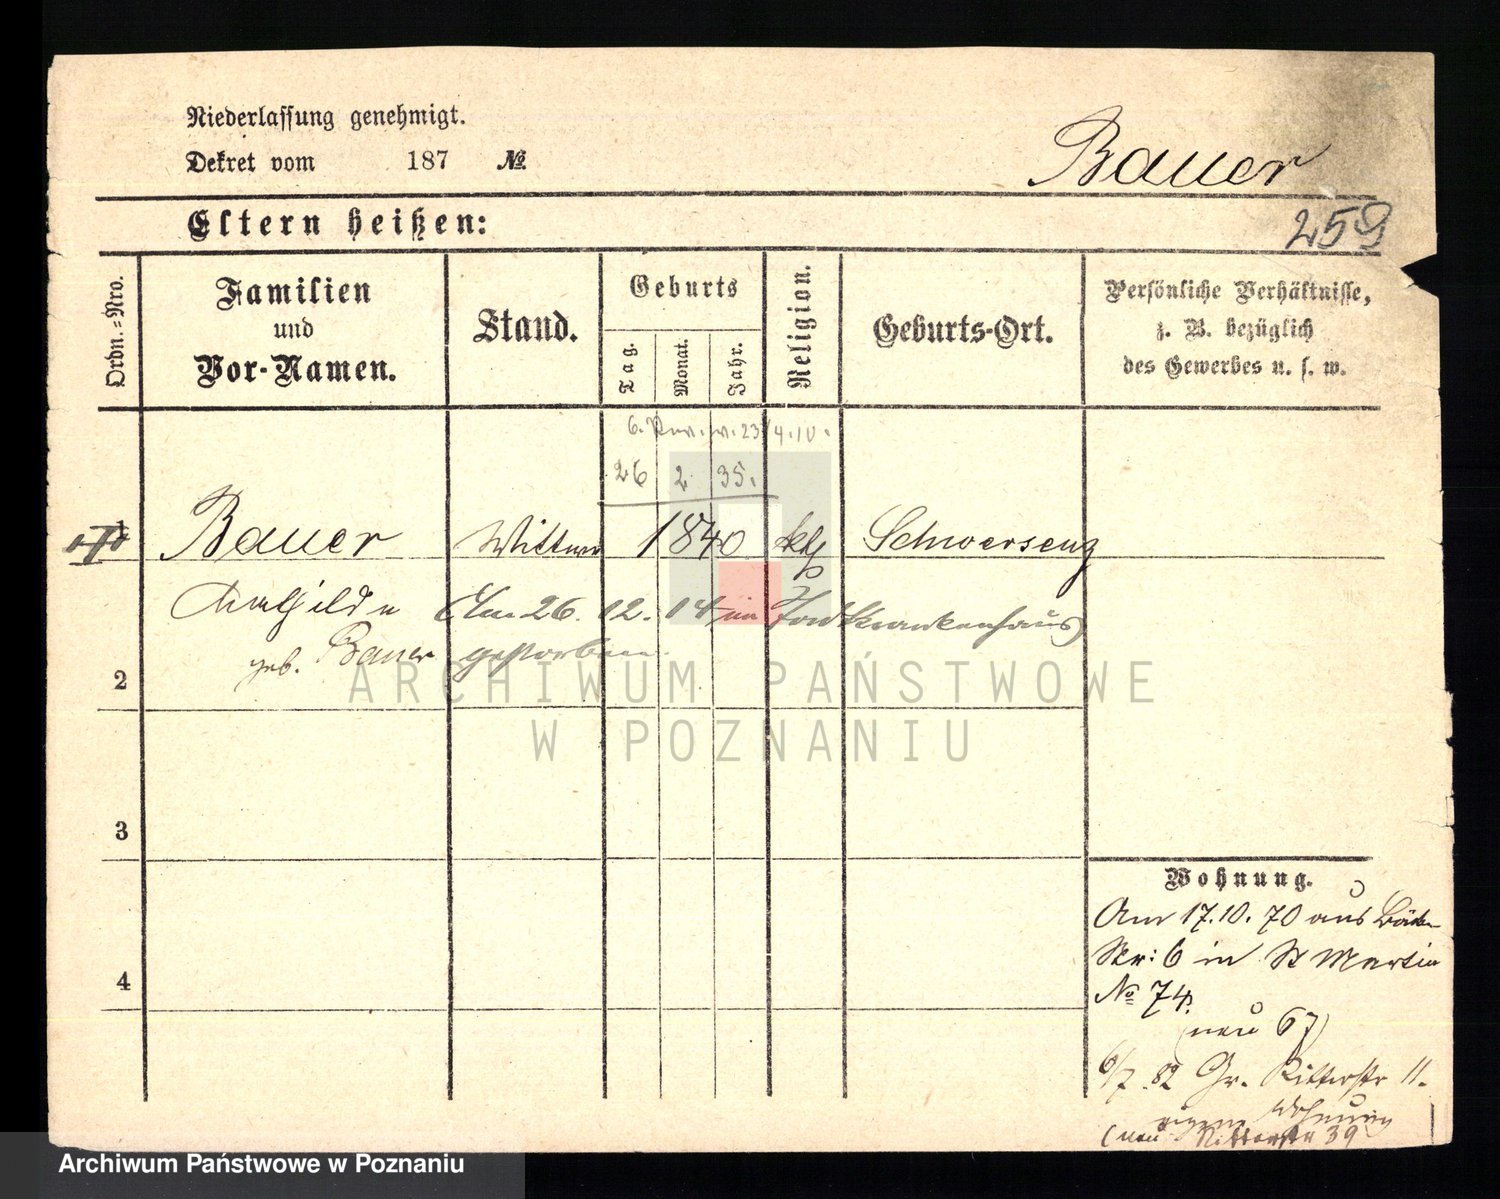 Niederlassung genehmigt.
Dekret vom 187 №
Bauer
Eltern heißen:
259
Ordn.-Nro.
Familien
und
Vor-Namen.
Stand.
Geburts
Tag.
Monat.
Jahr.
Religion.
Geburts-Ort.
Persönliche Verhältnisse,
z. B. bezüglich
des Gewerbes u. s. w.
26 2 35.
1 Bauer Wittwe 1840 kth Schwersenz
Mathilde (Am 26. 12. 14 im Krankenhaus)
geb. Bauer gestorben.
2
ARCHIWUM PAŃSTWOWE
W POZNANIU
3
4
Wohnung.
Am 17.10.70 aus
Str: 6 in St Martin
№ 74.
(neu 67)
6/7. 82 Gr. Ritterstr 11.
eigene Wohnung
(neu Ritterstr 39
Archiwum Państwowe w Poznaniu